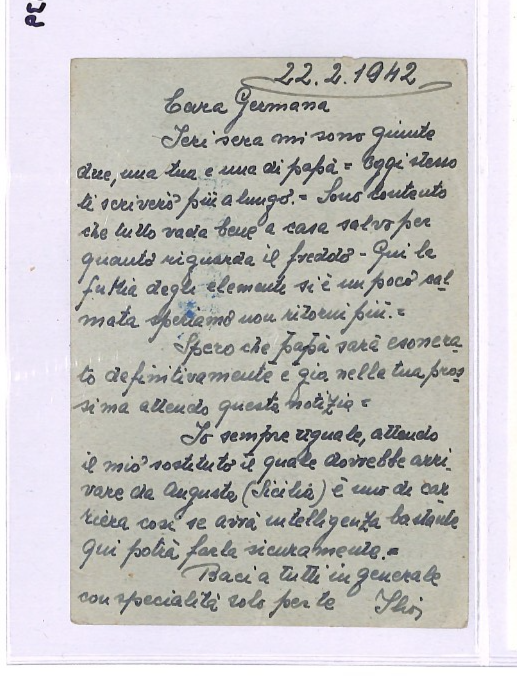 PE
22.2.1942
Cara Germana
Ieri sera mi sono giunte
due, una tua e una di papà = Oggi stesso
ti scriverò più a lungo. = Sono contento
che tutto vada bene a casa salvo per
quanto riguarda il freddo - Qui la
furia degli elementi si è un poco cal-
mata speriamo non ritorni più. =
Spero che papà sarà esonera-
to definitivamente e già nella tua pros-
sima attendo questa notizia =
Io sempre uguale, attendo
il mio sostituto il quale dovrebbe arri-
vare da Augusta (Sicilia) è uno di car-
riera così se avrà intelligenza bastante
qui potrà farla sicuramente. =
Baci a tutti in generale
con specialità solo per te